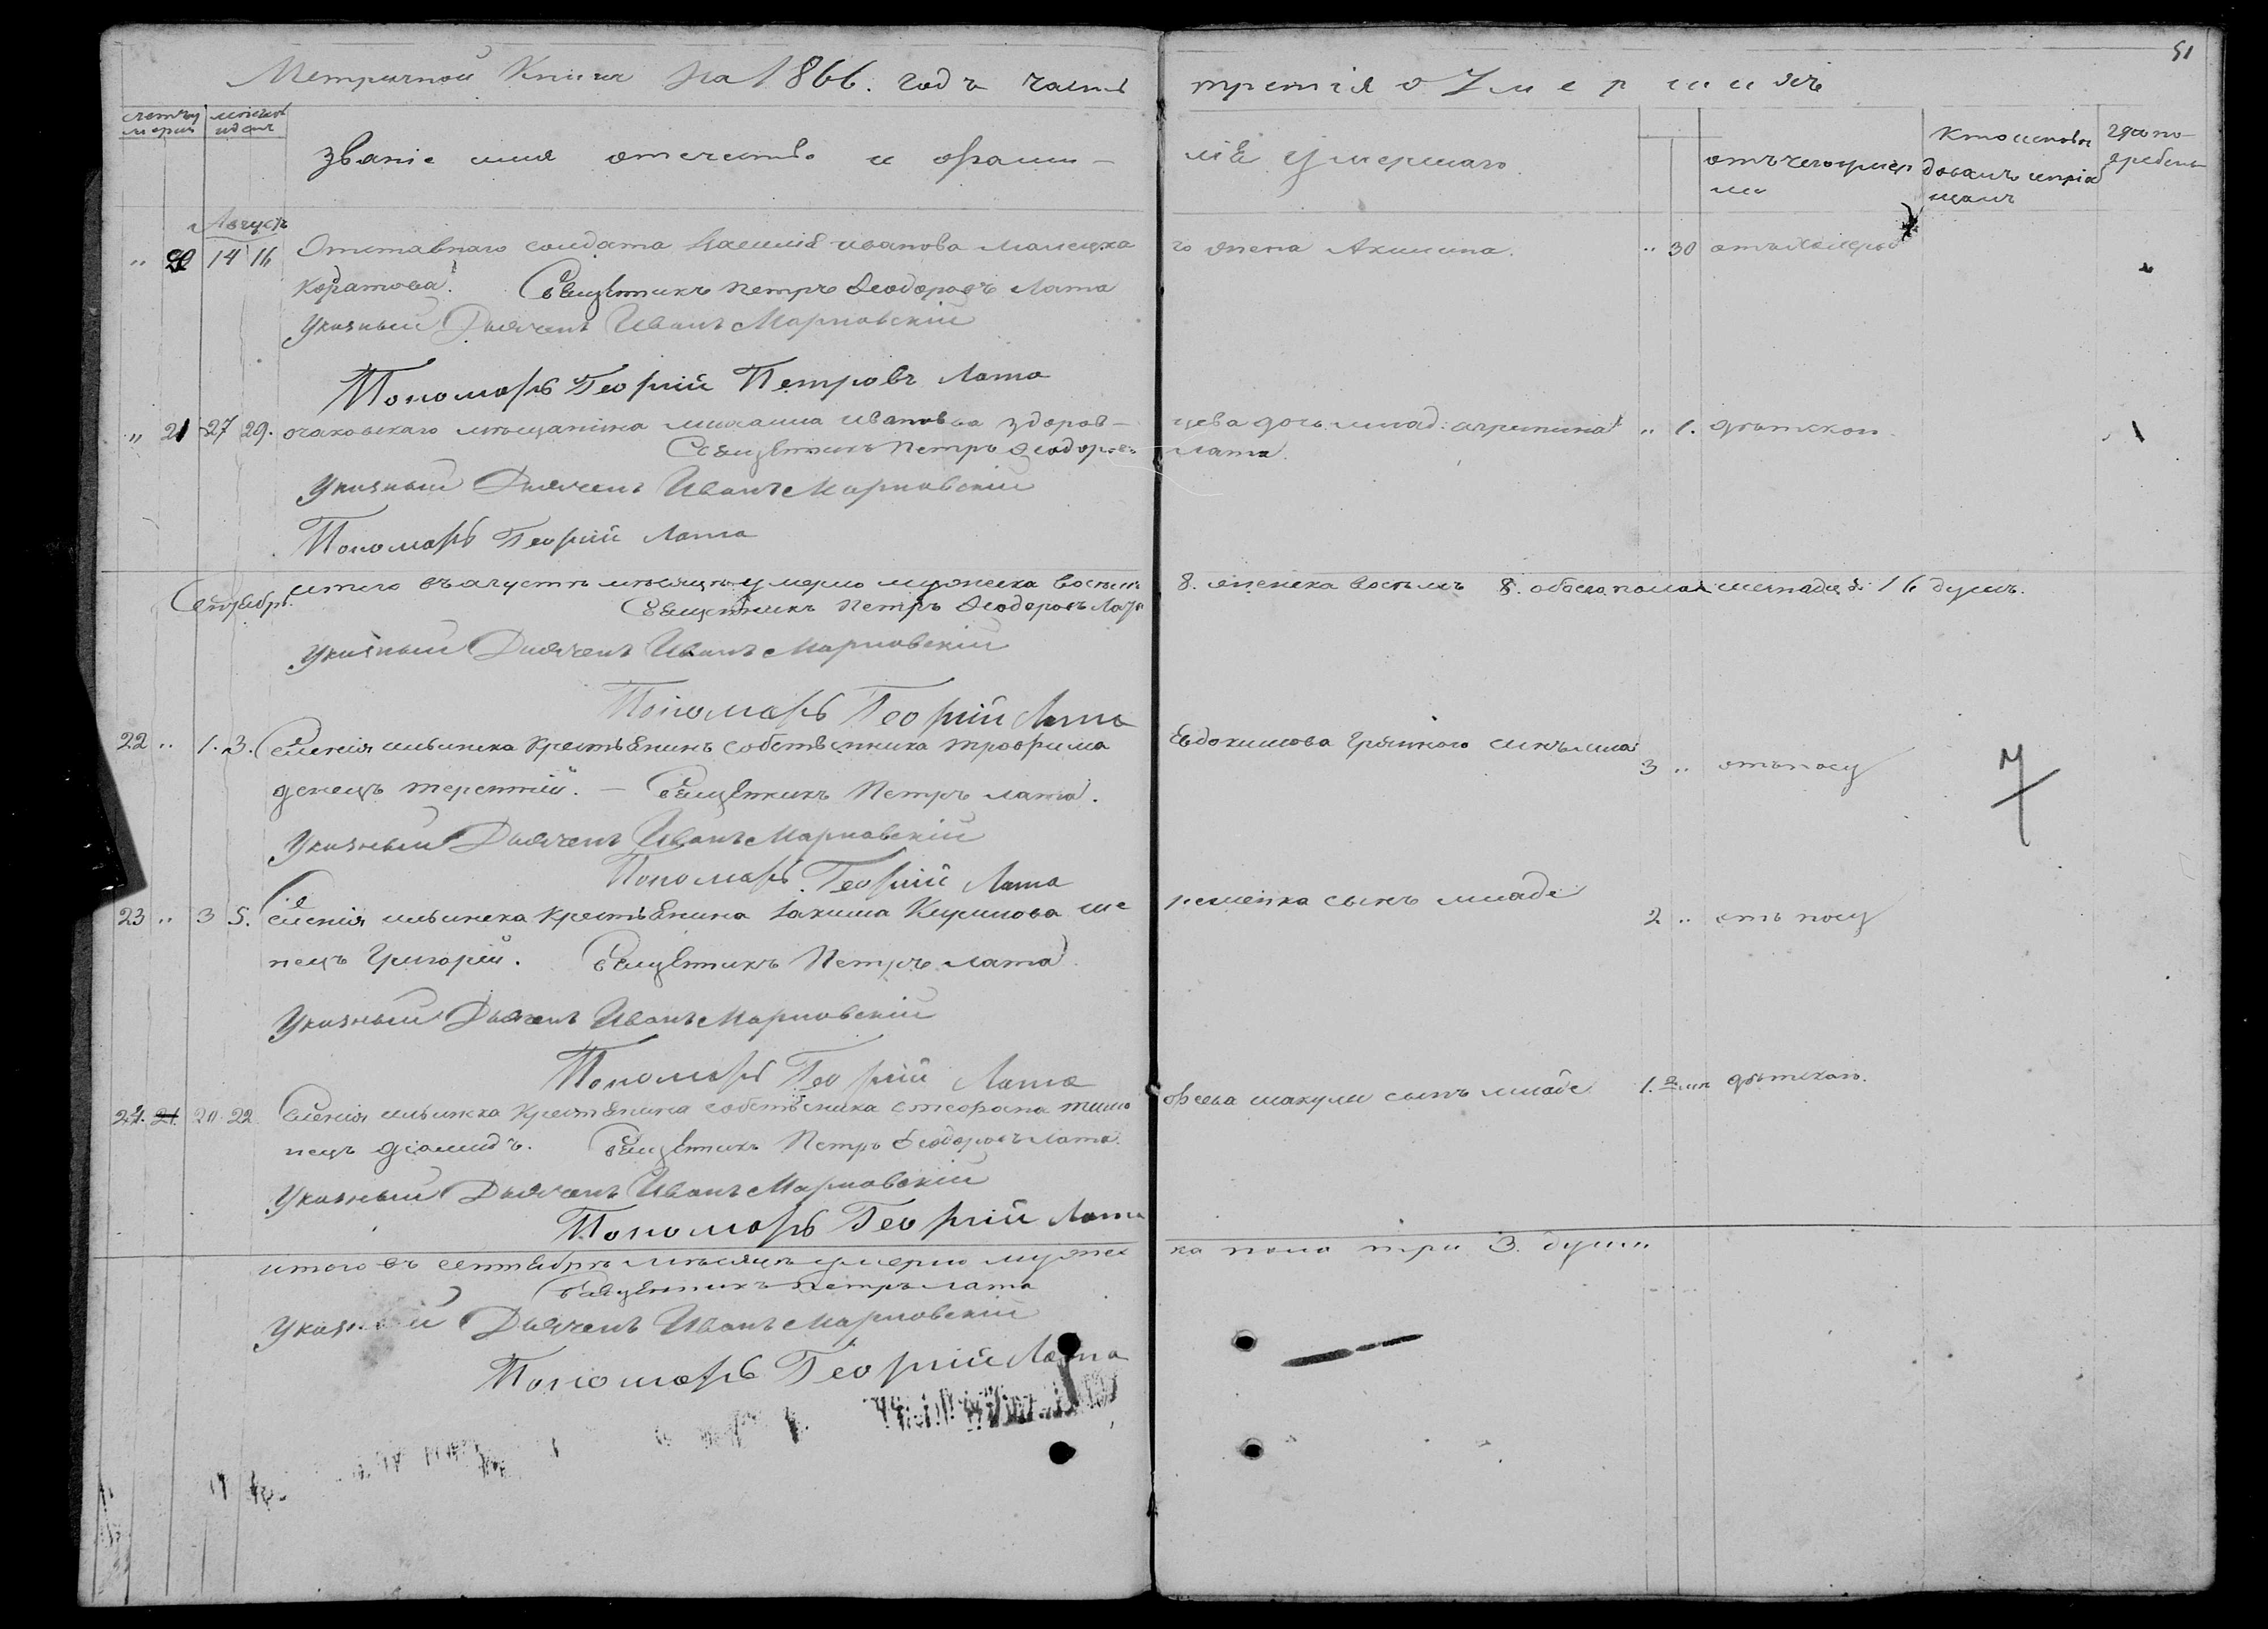 51
Метричной Книги на 1866. годъ часть третія о Умершихъ
счетъ умерш
мѣсяцъ и день
званіе имя отечество и фамилія умершаго.
отъ чего умерли
Кто исповѣдовалъ и пріобщалъ
гдѣ погребены
Августъ
" 20 14 16 Отставнаго солдата Василія иванова Малецкаго жена Акилина. " 30 отъ холеры
Священникъ Петръ Ѳеодоровъ Лата
Указный Дьячекъ Иванъ Марковскій
Пономарь Георгій Петровъ Лата
" 21 27 29. очаковскаго мѣщанина михаила иванова здоровцева дочь млад: агрипина " 1. дѣтской
Священникъ Петръ Ѳеодоровъ Лата.
Указный Дьячекъ Иванъ Марковскій
Пономарь Георгій Лата
итого въ августѣ мѣсяцѣ умерло мужеска восемь 8. женска восемь 8. обоего пола шестнадц: 16 душъ.
Сентябрь.
Священникъ Петръ Ѳеодоровъ Лата
Указный Дьячекъ Иванъ Марковскій
Пономарь Георгій Лата
22 " 1. 3. Селенія ильинска крестьянинъ собственника трофима Евдокимова сынъ мла
3 " отъ носу
денецъ терентій. — Священникъ Петръ лата.
Указный Дьячекъ Иванъ Марковскій
Пономарь Георгій Лата
23 " 3 5. Селенія ильинска крестьянина Іакима Кирилова ше ремейка сынъ младе
2 " отъ носу
нецъ Григорій. Священникъ Петръ лата
Указный Дьячекъ Иванъ Марковскій
Пономарь Георгій Лата
24. 20 22 Селенія ильинска крестьянина собственика стефана тимо фѣева шакули сынъ младе 1. дѣтской.
нецъ діомидъ. Священникъ Петръ Ѳеодоровъ лата.
Указный Дьячекъ Иванъ Марковскій
Пономарь Георгій Лата
итого въ сентябрѣ мѣсяцѣ умерло мужес ка пола три 3. души
Священникъ Петръ лата
Указный Дьячекъ Иванъ Марковскій
Пономарь Георгій Лата